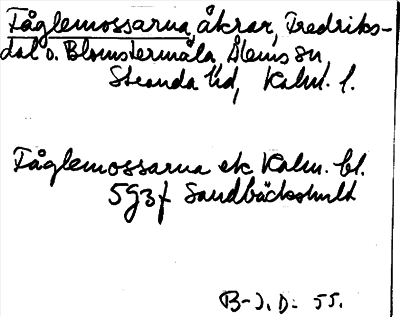 Fåglemossarna, åkrar, Fredriks-
dal o. Blomstermåla, Ålems sn,
Stranda hd, Kalm. l.
Fåglemossarna ek Kalm. bl.
5g3f Sandbäckshult
B-J. D. 55.